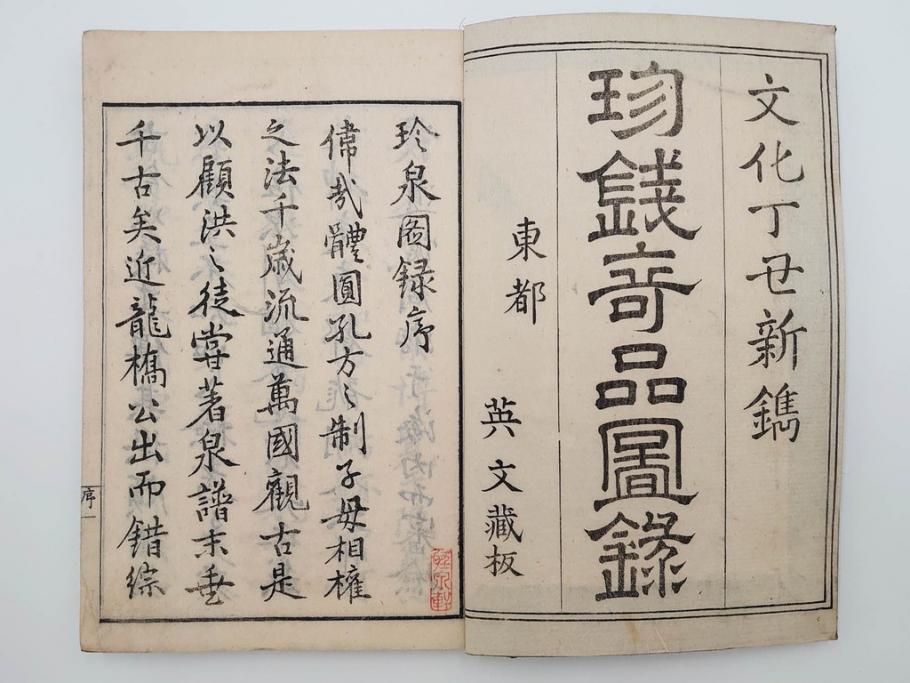 文化丁丑新鐫
珍錢奇品圖錄
東都 英文藏板
珍泉圖録序
偉哉體圓孔方之制子母相權
之法千歳流通萬國觀古是
以顧洪之徒甞著泉譜末垂
千古矣近龍橋公出而錯綜
序一